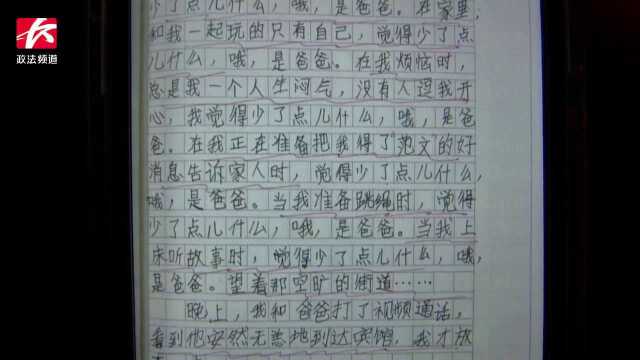 政法频道
少了点儿什么，哦，是爸爸。在家里，
和我一起玩的只有自己，觉得少了点
儿什么，哦，是爸爸。在我烦恼时，
总是我一个人生闷气，没有人逗我开
心，我觉得少了点儿什么，哦，是爸
爸。在我正在准备把我得了"范文的好
消息告诉家人时，觉得少了点儿什么，
哦，是爸爸。当我准备跳绳时，觉得
少了点儿什么，哦，是爸爸。当我上
床听故事时，觉得少了点儿什么，哦，
是爸爸。望着那空旷的街道……
晚上，我和爸爸打了视频通话，
看到他安然无恙地到达宾馆，我才放